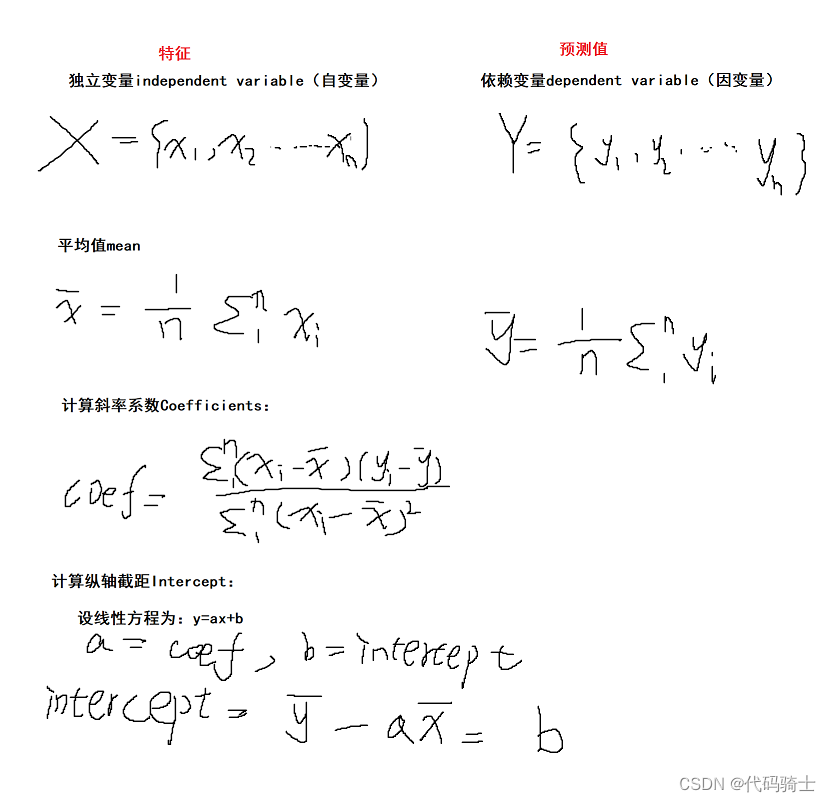 特征
预测值
独立变量independent variable（自变量）
依赖变量dependent variable（因变量）
X = {x₁, x₂ ······ xₙ}
Y = {y₁, y₂ ····· yₙ}
平均值mean
x̄ = 1/n Σ₁ⁿ xᵢ
ȳ = 1/n Σ₁ⁿ yᵢ
计算斜率系数Coefficients：
coef = Σ₁ⁿ(xᵢ-x̄)(yᵢ-ȳ) / Σ₁ⁿ(xᵢ-x̄)²
计算纵轴截距Intercept：
设线性方程为：y=ax+b
a = coef, b = intercept
intercept = ȳ - ax̄ = b
CSDN @代码骑士